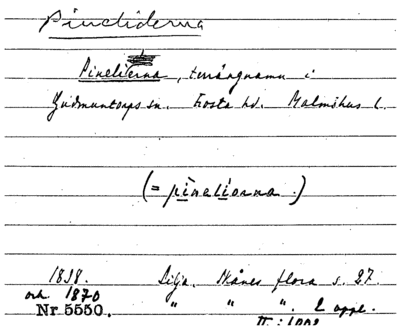 Pineliderna
Pineliderna, terrängnamn i
Gudmuntorps sn. Frosta hd. Malmöhus l.
(= pineliorna.)
1838. Lilja, Skånes flora s. 27.
och 1870 " " ". 2 uppl.
Nr 5550.